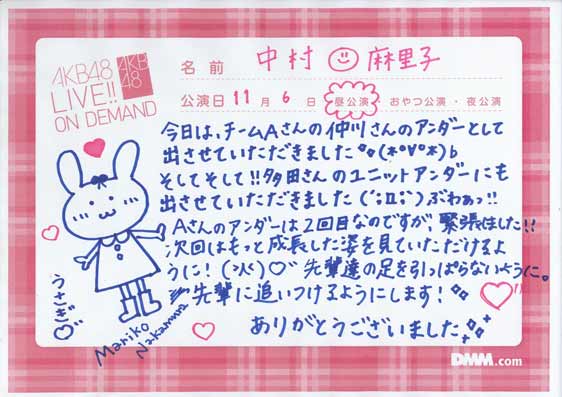 AKB48
LIVE!!
ON DEMAND
AKB
48
名前 中村 麻里子
公演日 11月6日 昼公演・おやつ公演・夜公演
今日は、チームAさんの仲川さんのアンダーとして
出させていただきました(*°∀°*)b
そしてそして!!多田さんのユニットアンダーにも
出させていただきました(´;Д;`)ぶわぁっ!!
Aさんのアンダーは2回目なのですが、緊張しました!!
次回はもっと成長した姿を見ていただけるよ
うに!(>人<)♡ 先輩達の足を引っぱらないように。
先輩に追いつけるようにします!
ありがとうございました
うさぎ♡
Mariko
Nakamura
DMM.com